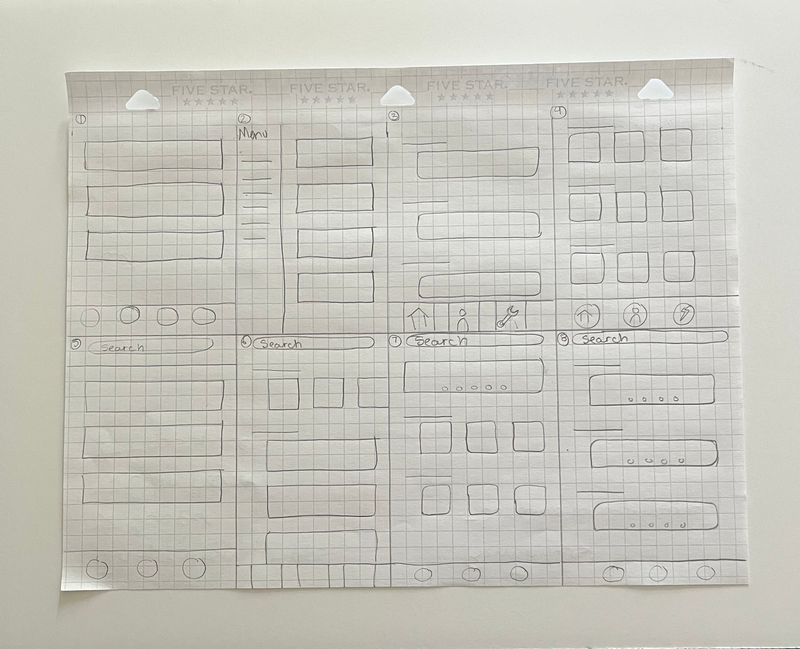 FIVE STAR.
★★★★★
FIVE STAR.
★★★★★
FIVE STAR.
★★★★★
FIVE STAR.
★★★★★
1
2
Menu
3
4
5
Search
6
Search
7
Search
8
Search